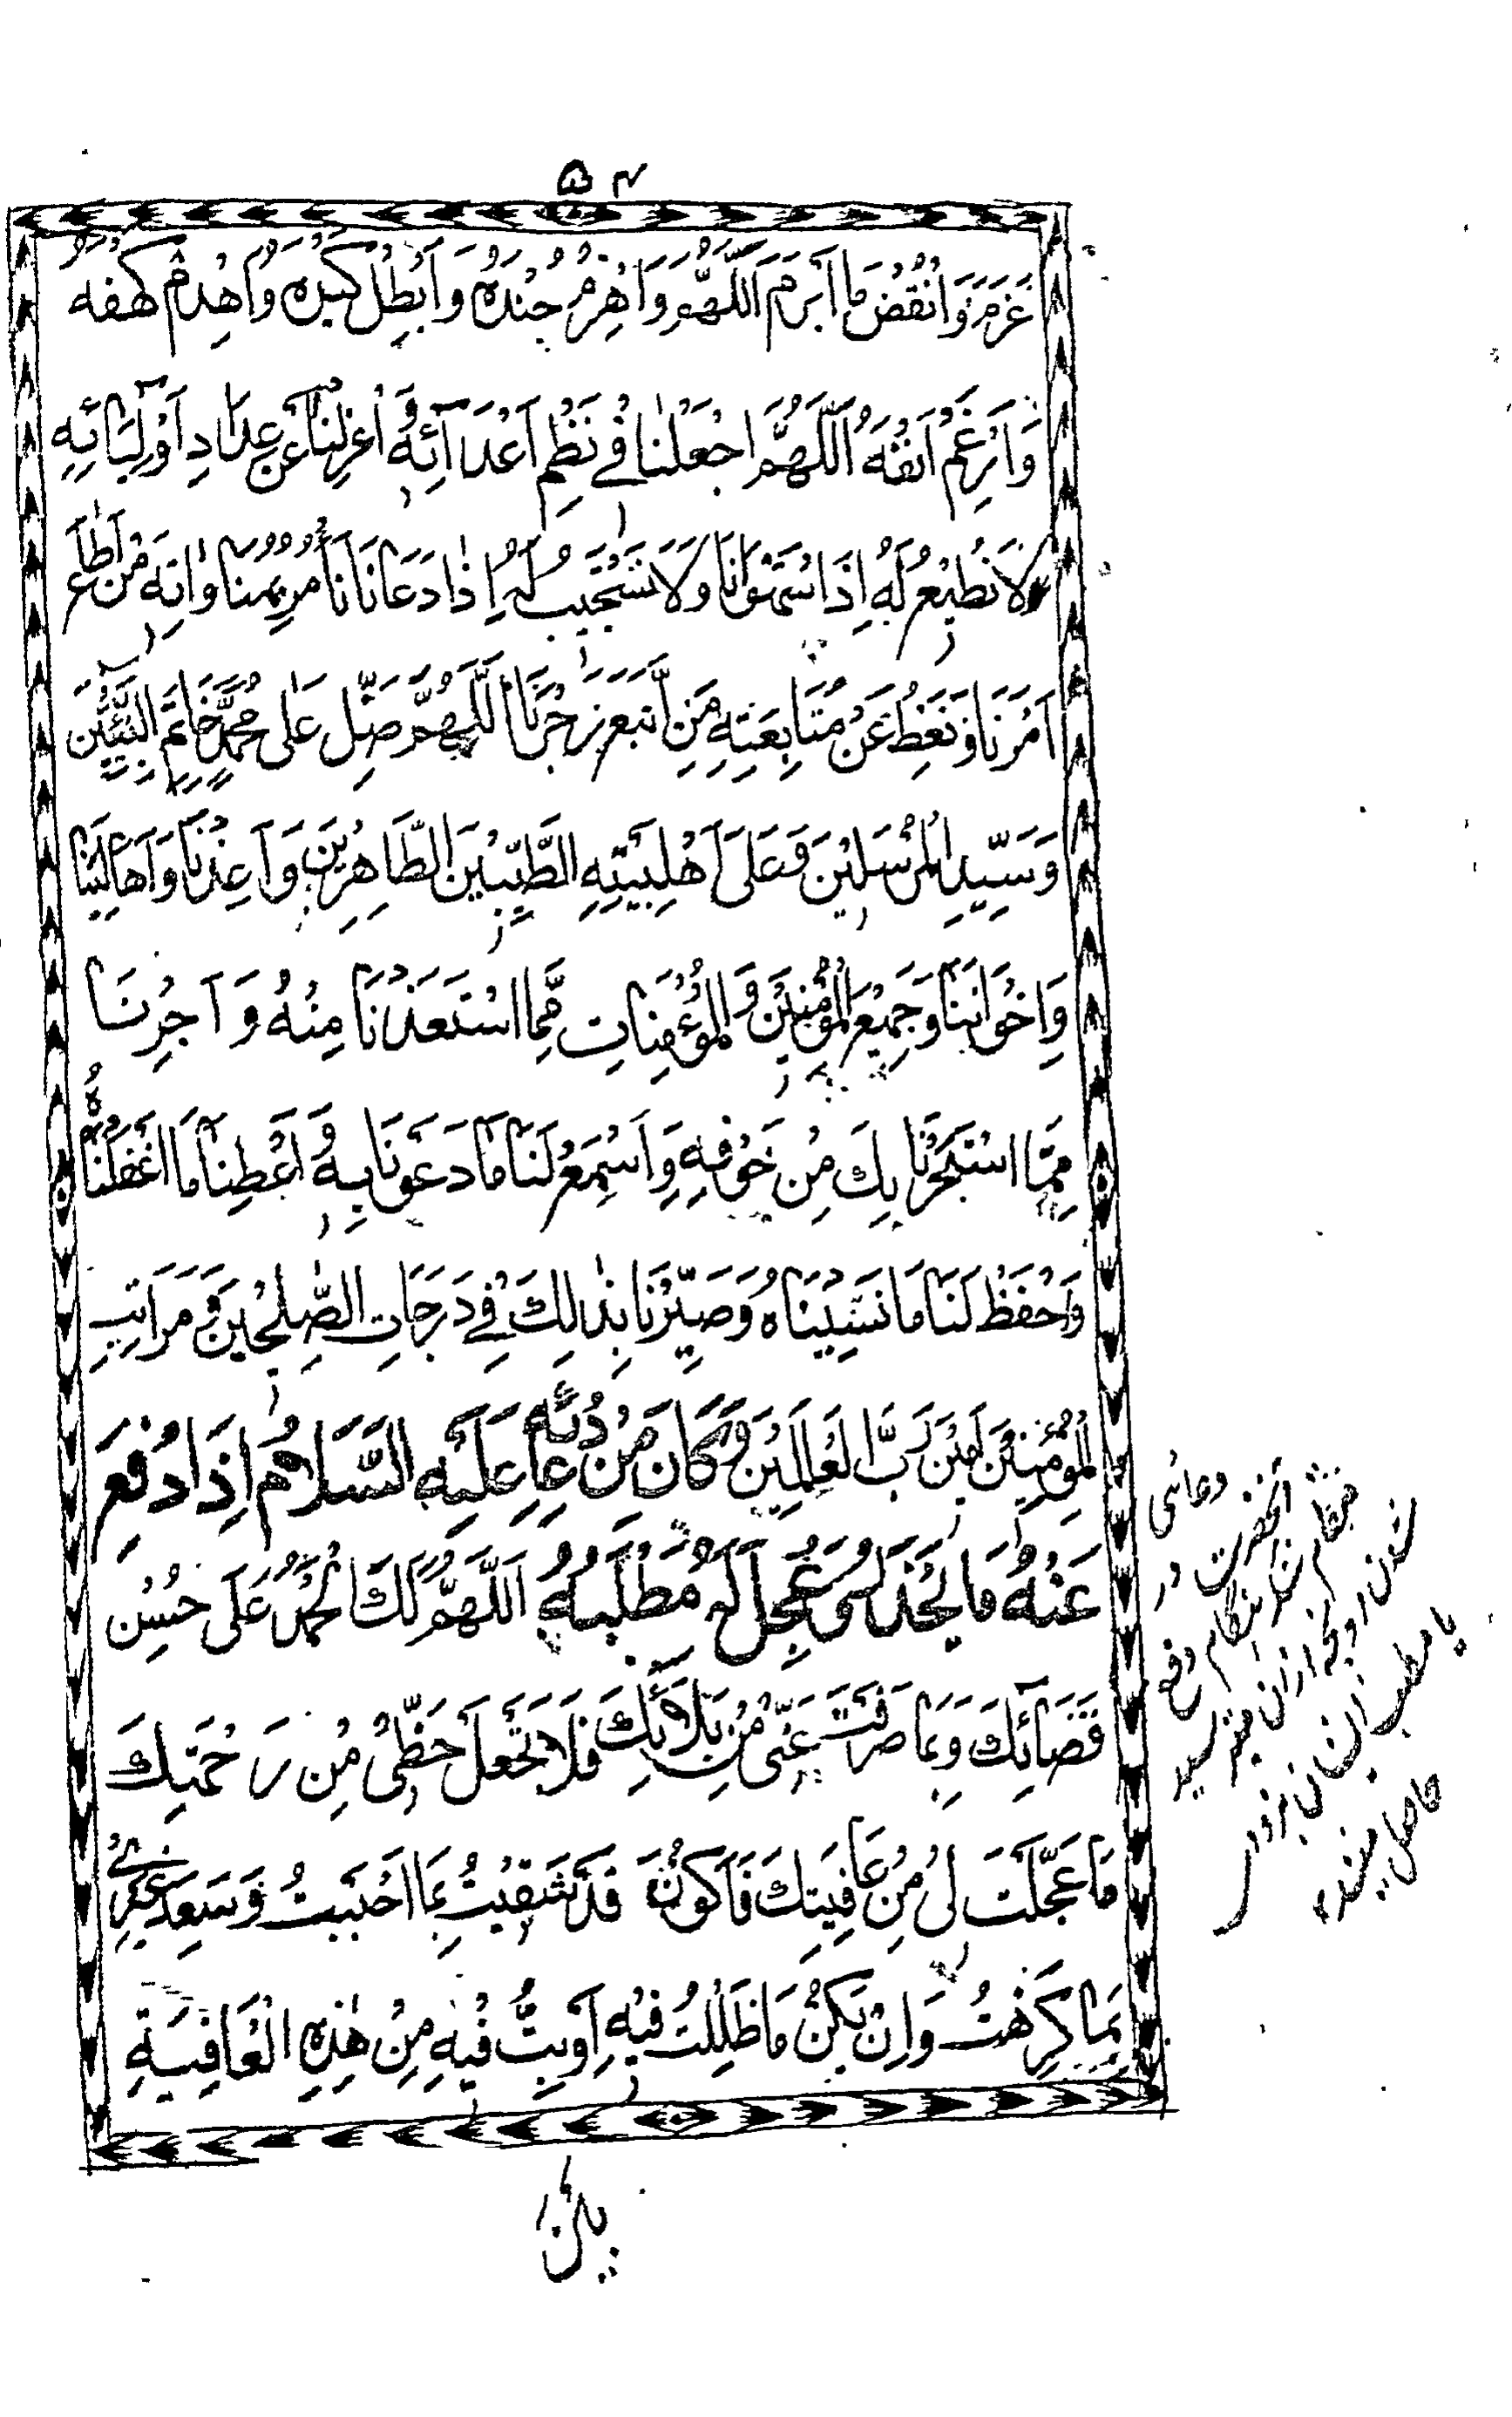 ۵۴
عَزَمَ وَانْقُضْ مَا اَبْرَمَ اَللّٰهُمَّ وَاهْزِمْ جُنْدَهُ وَاَبْطِلْ كَيْدَهُ وَاهْدِمْ كَهْفَهُ
وَاَرْغِمْ اَنْفَهُ اَللّٰهُمَّ اجْعَلْنَا فِي نَظْمِ اَعْدَآئِهِ وَاعْزِلْنَا عَنْ عِدَادِ اَوْلِيَآئِهِ
لَا نُطِيْعُ لَهُ اِذَا اسْتَهْوَانَا وَلَا نَسْتَجِيْبُ لَهُ اِذَا دَعَانَا نَأْمُرُ بِمُنَاوَاتِهِ مَنْ اَطَاعَ
اَمْرَنَا وَنَعِظُ عَنْ مُتَابَعَتِهِ مَنِ اتَّبَعَ زَجْرَنَا اَللّٰهُمَّ صَلِّ عَلٰى مُحَمَّدٍ خَاتَمِ النَّبِيِّيْنَ
وَسَيِّدِ الْمُرْسَلِيْنَ وَعَلٰى اَهْلِ بَيْتِهِ الطَّيِّبِيْنَ الطَّاهِرِيْنَ وَاَعِذْنَا وَاَهَالِيَنَا
وَاِخْوَانَنَا وَجَمِيْعَ الْمُؤْمِنِيْنَ وَالْمُؤْمِنَاتِ مِمَّا اسْتَعَذْنَا مِنْهُ وَاَجِرْنَا
مِمَّا اسْتَجَرْنَا بِكَ مِنْ خَوْفِهِ وَاسْمَعْ لَنَا مَا دَعَوْنَا بِهِ وَاَعْطِنَا مَا اَغْفَلْنَاهُ
وَاحْفَظْ لَنَا مَا نَسِيْنَاهُ وَصَيِّرْنَا بِذٰلِكَ فِي دَرَجَاتِ الصّٰلِحِيْنَ وَمَرَاتِبِ
الْمُؤْمِنِيْنَ اٰمِيْنَ رَبَّ الْعٰلَمِيْنَ وَكَانَ مِنْ دُعَائِهِ عَلَيْهِ السَّلَامُ اِذَا دُفِعَ
عَنْهُ مَا يَحْذَرُ اَوْ عُجِّلَ لَهُ مَطْلَبُهُ اَللّٰهُمَّ لَكَ الْحَمْدُ عَلٰى حُسْنِ
قَضَائِكَ وَبِمَا صَرَفْتَ عَنِّيْ مِنْ بَلَائِكَ فَلَا تَجْعَلْ حَظِّيْ مِنْ رَحْمَتِكَ
مَا عَجَّلْتَ لِيْ مِنْ عَافِيَتِكَ فَاَكُوْنَ قَدْ شَقِيْتُ بِمَا اَحْبَبْتُ وَسَعِدَ غَيْرِيْ
بِمَا كَرِهْتُ وَاِنْ يَكُنْ مَا ظَلِلْتُ فِيْهِ اَوْ بِتُّ فِيْهِ مِنْ هٰذِهِ الْعَافِيَةِ
دعائى آنحضرت در